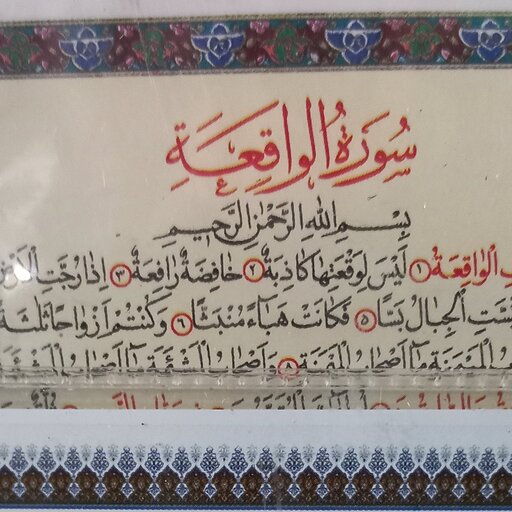 سُورَةُ الْوَاقِعَةِ
بِسْمِ اللهِ الرَّحْمٰنِ الرَّحِيمِ
الْوَاقِعَةُ ١ لَيْسَ لِوَقْعَتِهَا كَاذِبَةٌ ٢ خَافِضَةٌ رَافِعَةٌ ٣ اِذَا رُجَّتِ الْاَرْضُ
الْجِبَالُ بَسًّا ٥ فَكَانَتْ هَبَاءً مُنْبَثًّا ٦ وَكُنْتُمْ اَزْوَاجًا ثَلٰثَةً
الْمَيْمَنَةِ مَا اَصْحَابُ الْمَيْمَنَةِ ٨ وَاَصْحَابُ الْمَشْئَمَةِ مَا اَصْحَابُ الْمَشْئَمَةِ